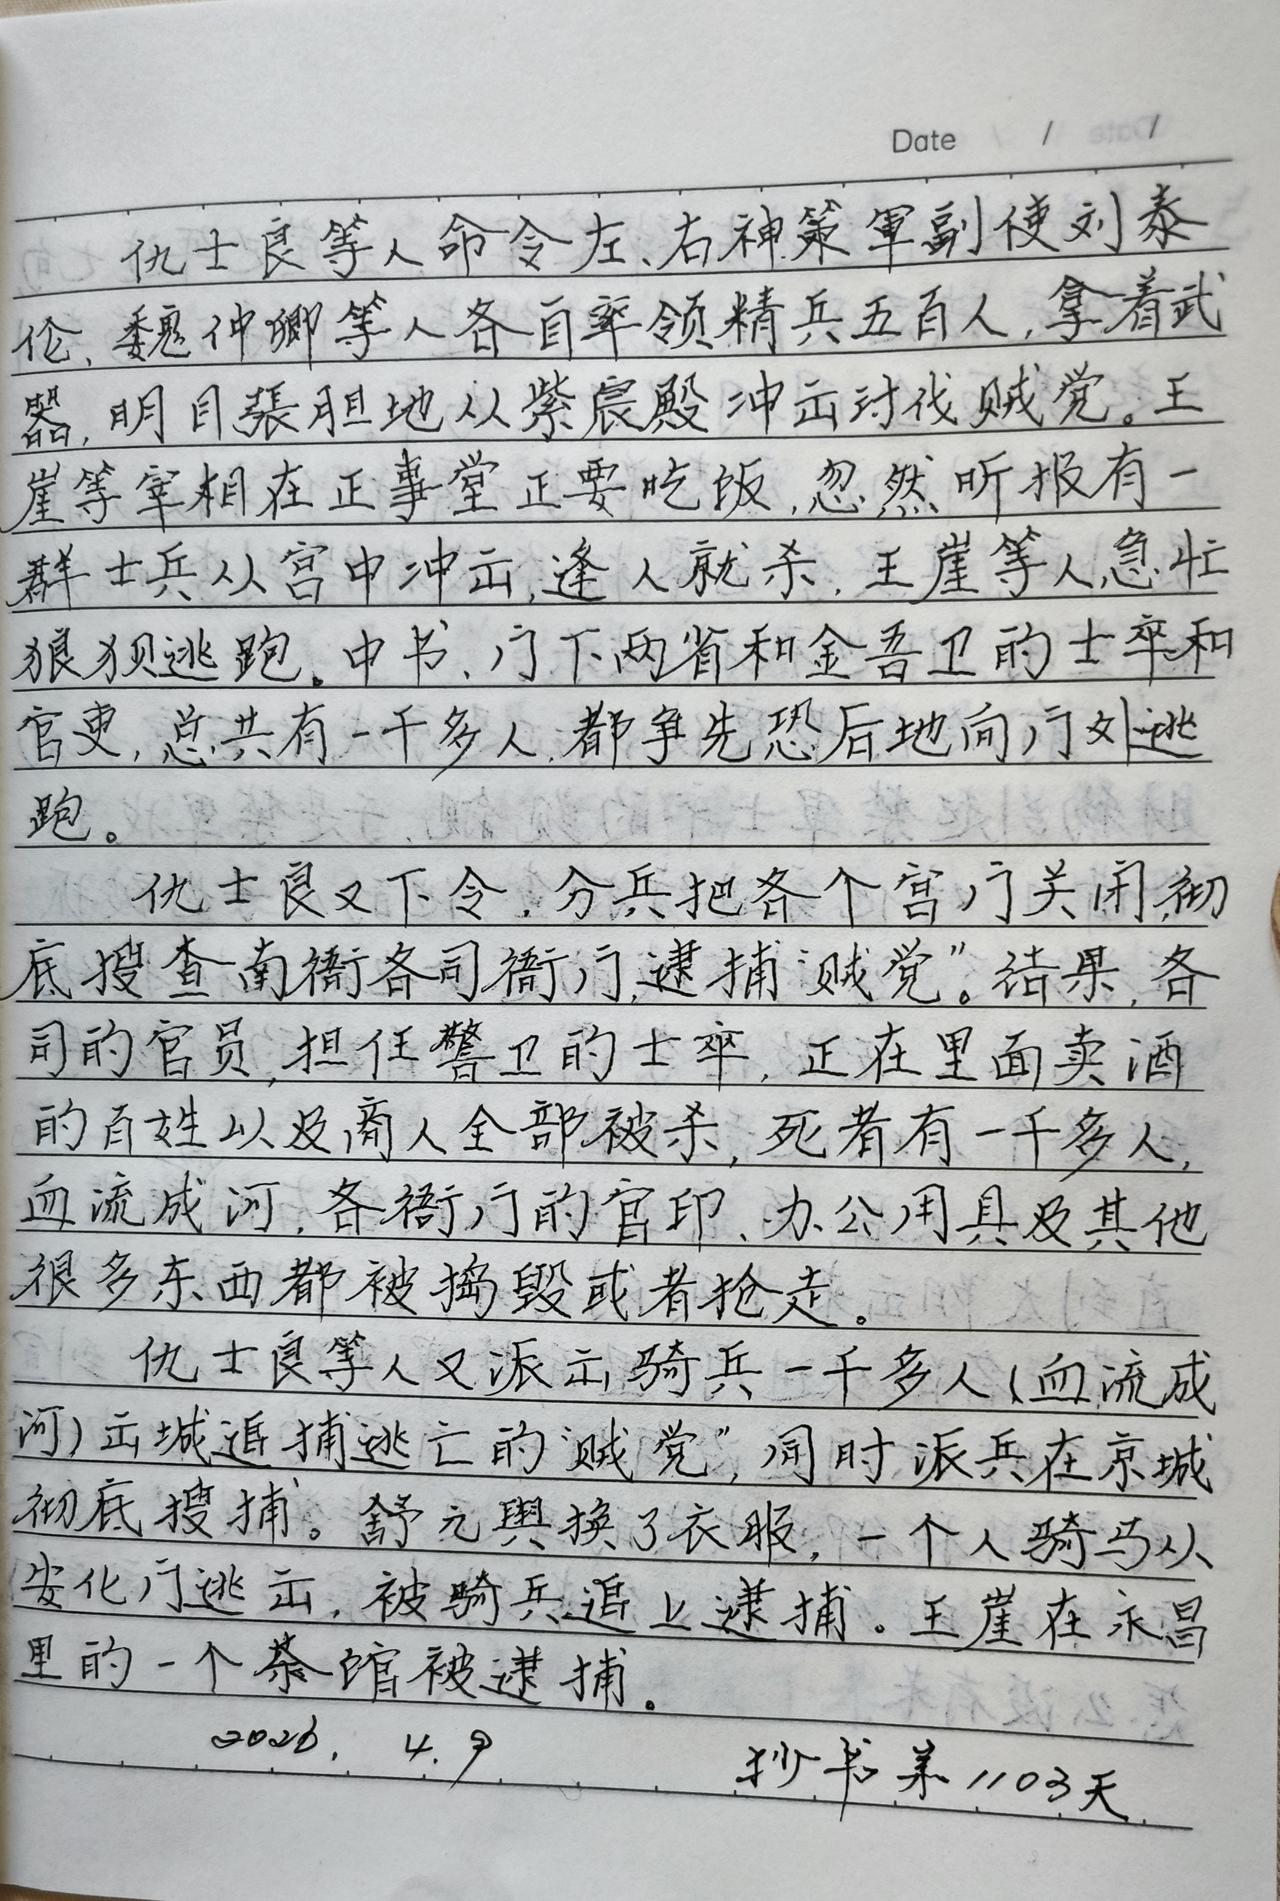 Date / /
仇士良等人命令左、右神策軍副使刘泰
伦、魏仲卿等人各自率领精兵五百人,拿着武
器,明目張胆地从紫宸殿冲出讨伐贼党。王
崖等宰相在正事堂正要吃饭,忽然听报有一
群士兵从宫中冲出,逢人就杀,王崖等人急忙
狼狈逃跑。中书、门下两省和金吾卫的士卒和
官吏,总共有一千多人,都争先恐后地向门外逃
跑。
仇士良又下令,分兵把各个宫门关闭,彻
底搜查南衙各司衙门,逮捕“贼党”。结果,各
司的官员,担任警卫的士卒,正在里面卖酒
的百姓以及商人全部被杀,死者有一千多人,
血流成河,各衙门的官印、办公用具及其他
很多东西都被捣毁或者抢走。
仇士良等人又派出骑兵一千多人(血流成
河)出城追捕逃亡的“贼党”,同时派兵在京城
彻底搜捕。舒元舆换了衣服,一个人骑马从
安化门逃出,被骑兵追上逮捕。王崖在永昌
里的一个茶館被逮捕。
2026. 4. 9 抄书第1103天